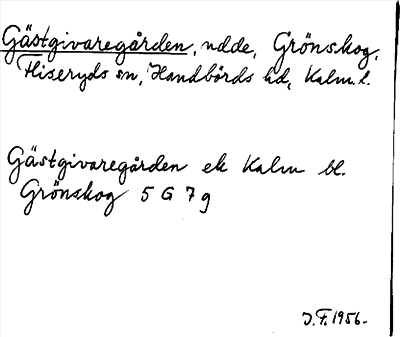 Gästgivaregården, udde, Grönskog,
Fliseryds sn, Handbörds hd, Kalm. l.
Gästgivaregården ek Kalm bl.
Grönskog 5 G 7 g
J.F. 1956.